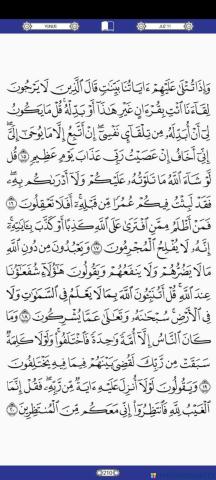 YUNUS
JUZ 11
وَإِذَا تُتْلَىٰ عَلَيْهِمْ ءَايَاتُنَا بَيِّنَٰتٍ قَالَ ٱلَّذِينَ لَا يَرْجُونَ
لِقَآءَنَا ٱئْتِ بِقُرْءَانٍ غَيْرِ هَٰذَآ أَوْ بَدِّلْهُ قُلْ مَا يَكُونُ
لِىٓ أَنْ أُبَدِّلَهُۥ مِن تِلْقَآئِ نَفْسِىٓ إِنْ أَتَّبِعُ إِلَّا مَا يُوحَىٰٓ إِلَىَّ
إِنِّىٓ أَخَافُ إِنْ عَصَيْتُ رَبِّى عَذَابَ يَوْمٍ عَظِيمٍ ١٥ قُل
لَّوْ شَآءَ ٱللَّهُ مَا تَلَوْتُهُۥ عَلَيْكُمْ وَلَآ أَدْرَىٰكُم بِهِۦ
فَقَدْ لَبِثْتُ فِيكُمْ عُمُرًا مِّن قَبْلِهِۦٓ أَفَلَا تَعْقِلُونَ ١٦
فَمَنْ أَظْلَمُ مِمَّنِ ٱفْتَرَىٰ عَلَى ٱللَّهِ كَذِبًا أَوْ كَذَّبَ بِـَٔايَٰتِهِۦٓ
إِنَّهُۥ لَا يُفْلِحُ ٱلْمُجْرِمُونَ ١٧ وَيَعْبُدُونَ مِن دُونِ ٱللَّهِ
مَا لَا يَضُرُّهُمْ وَلَا يَنفَعُهُمْ وَيَقُولُونَ هَٰٓؤُلَآءِ شُفَعَٰٓؤُنَا
عِندَ ٱللَّهِ قُلْ أَتُنَبِّـُٔونَ ٱللَّهَ بِمَا لَا يَعْلَمُ فِى ٱلسَّمَٰوَٰتِ وَلَا
فِى ٱلْأَرْضِ سُبْحَٰنَهُۥ وَتَعَٰلَىٰ عَمَّا يُشْرِكُونَ ١٨ وَمَا
كَانَ ٱلنَّاسُ إِلَّآ أُمَّةً وَٰحِدَةً فَٱخْتَلَفُوا۟ وَلَوْلَا كَلِمَةٌ
سَبَقَتْ مِن رَّبِّكَ لَقُضِىَ بَيْنَهُمْ فِيمَا فِيهِ يَخْتَلِفُونَ
١٩ وَيَقُولُونَ لَوْلَآ أُنزِلَ عَلَيْهِ ءَايَةٌ مِّن رَّبِّهِۦ فَقُلْ إِنَّمَا
ٱلْغَيْبُ لِلَّهِ فَٱنتَظِرُوٓا۟ إِنِّى مَعَكُم مِّنَ ٱلْمُنتَظِرِينَ ٢٠
210